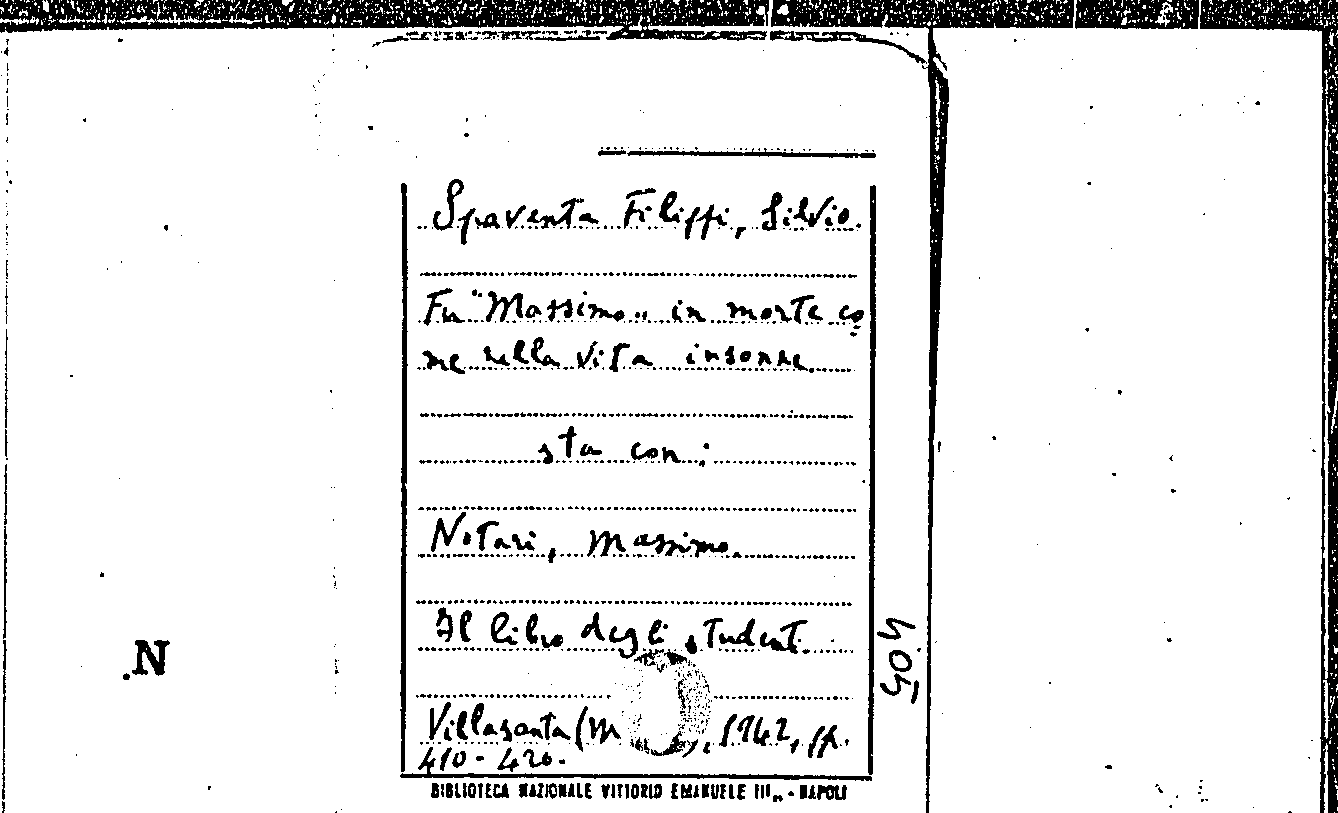 Spaventa Filippi, Silvio.
Fu "Massimo" in morte co
me nella vita insonne.
sta con:
Notari, Massimo.
Il libro degli studenti.
405
.N
Villasanta (M ), 1942, pp.
410-420.
BIBLIOTECA NAZIONALE VITTORIO EMANUELE III„ - NAPOLI